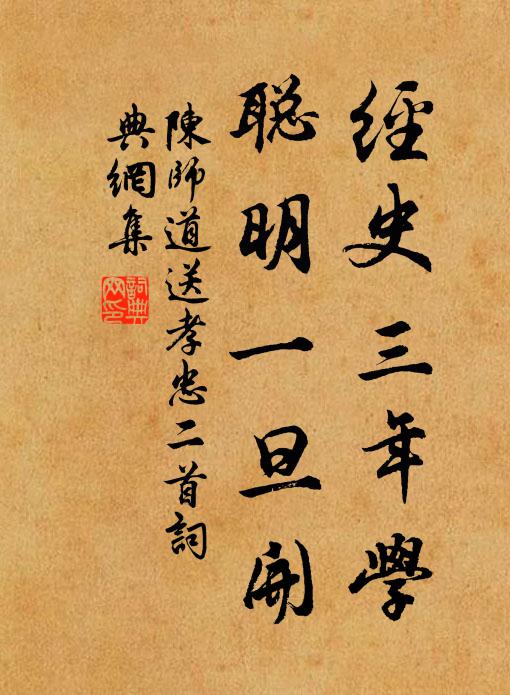 經史三年學
聰明一旦開
陳師道送孝忠二首詞
典網集
詞典
网印